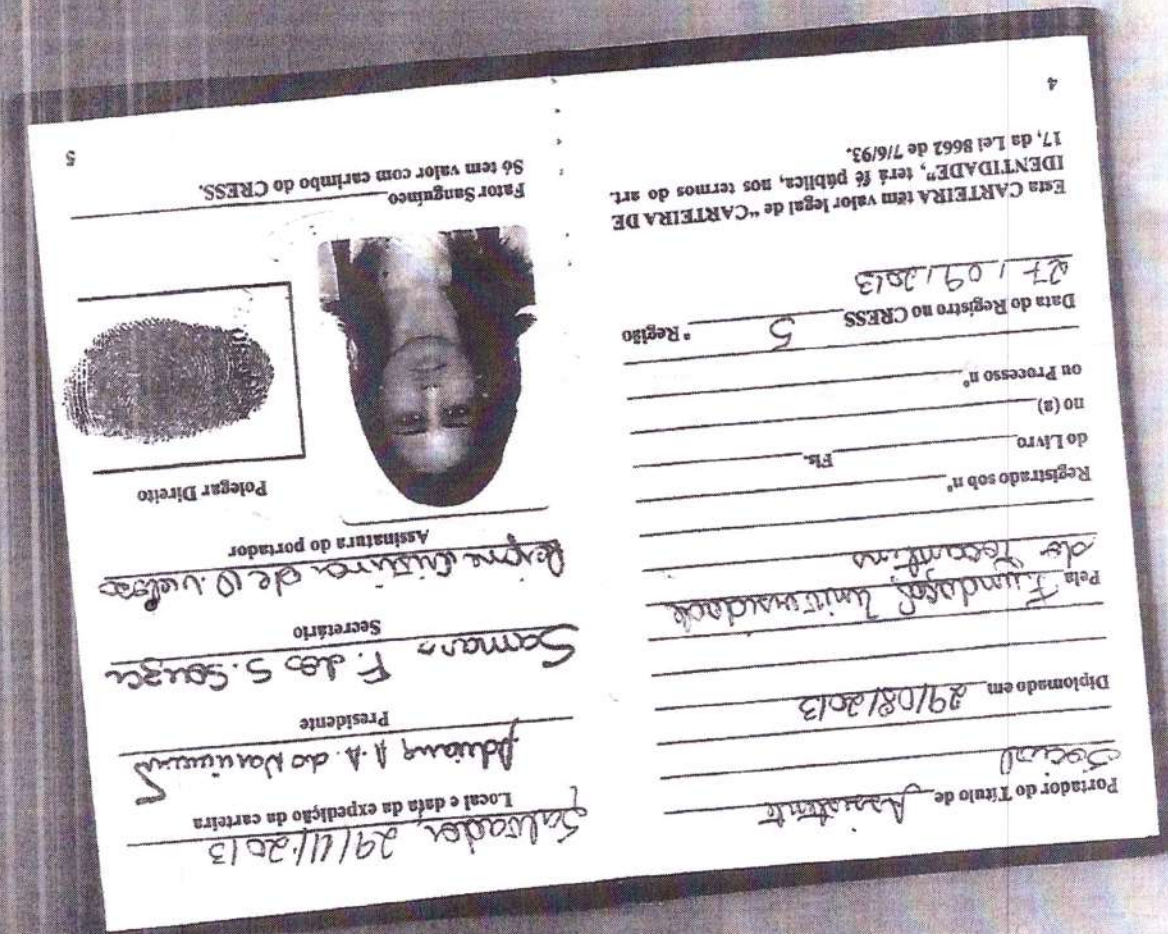 Portador do Título de Assistente
Social
Diplomado em 29/08/2013
Pela Fundação Universidade
do Tocantins
Registrado sob nº
do Livro Fls.
no (a)
ou Processo nº
Data do Registro no CRESS 5 ª Região
27 / 09 / 2013
Esta CARTEIRA têm valor legal de “CARTEIRA DE
IDENTIDADE”, terá fé pública, nos termos do art.
17, da Lei 8662 de 7/6/93.
4
Salvador, 29/11/2013
Local e data da expedição da carteira
Adriana A. do
Presidente
Samara F. dos S. Souza
Secretário
Cristina de O. Veloso
Assinatura do portador
Polegar Direito
Fator Sanguíneo
Só tem valor com carimbo do CRESS.
5